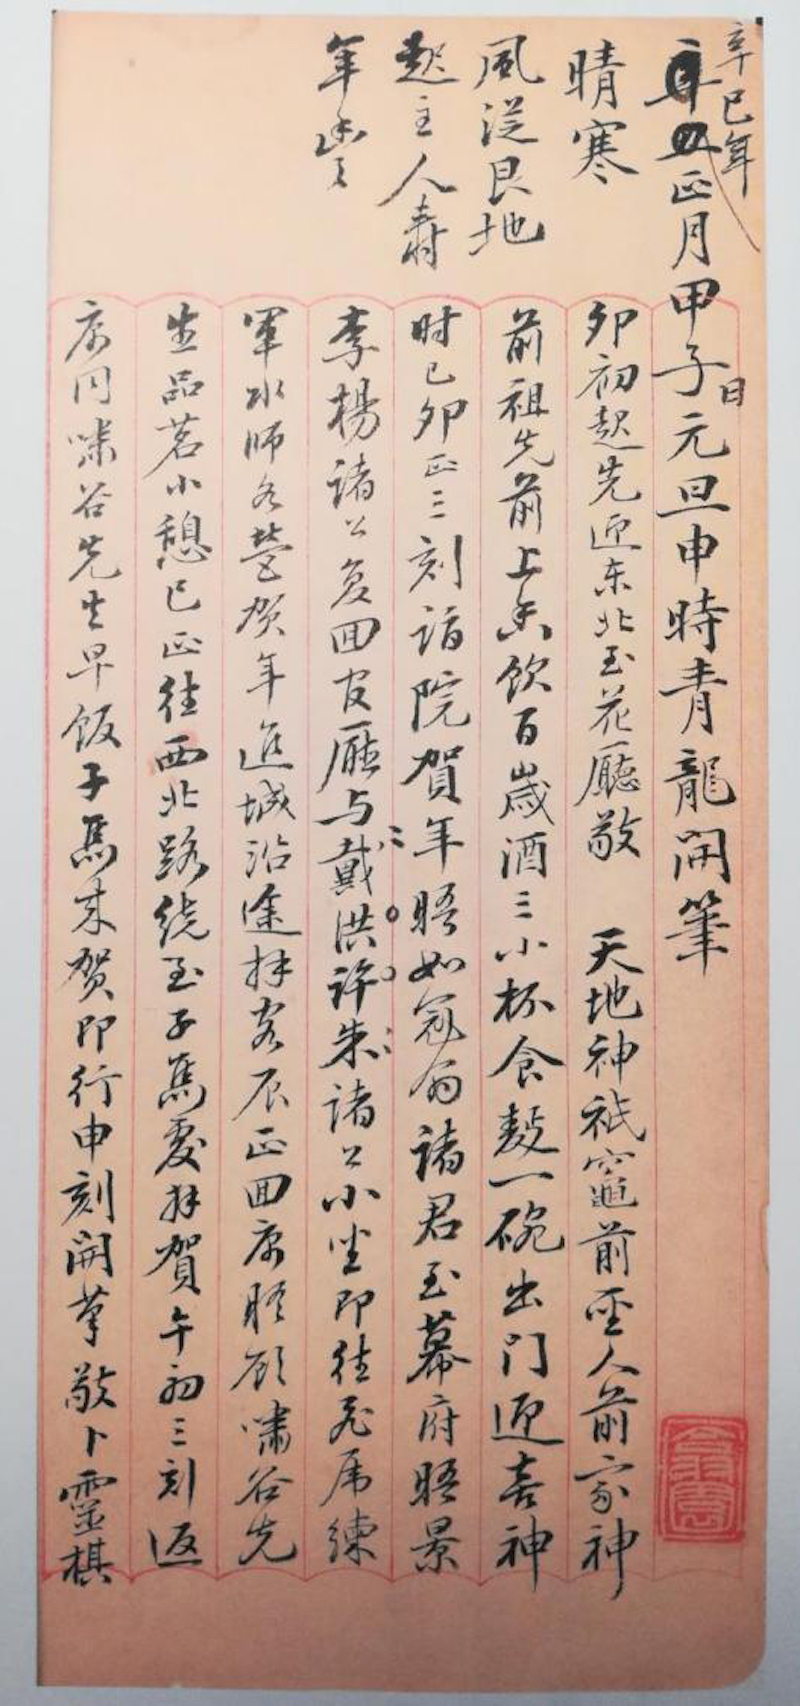 辛巳年
正月甲子日元旦申時青龍開筆
晴寒
風從艮地
起主人壽
年豐
卯初起先迎東北玉花廳敬 天地神祇竈前聖人前家神
前祖先前上香飲百歲酒三小杯食麵一碗出门迎喜神
时已卯正三刻詣院賀年晤如冠翁諸君至幕府晤景
李楊諸公复回官廳与戴洪許朱諸公小坐即往飛虎練
軍水师各營贺年進城沿途拜客辰正回寓晤顾嘯谷先
生品茗小憩巳正往西北路繞至子馬處拜賀午初三刻返
寓同嘯谷先生早飯子馬来贺即行申刻開筆敬卜靈棋